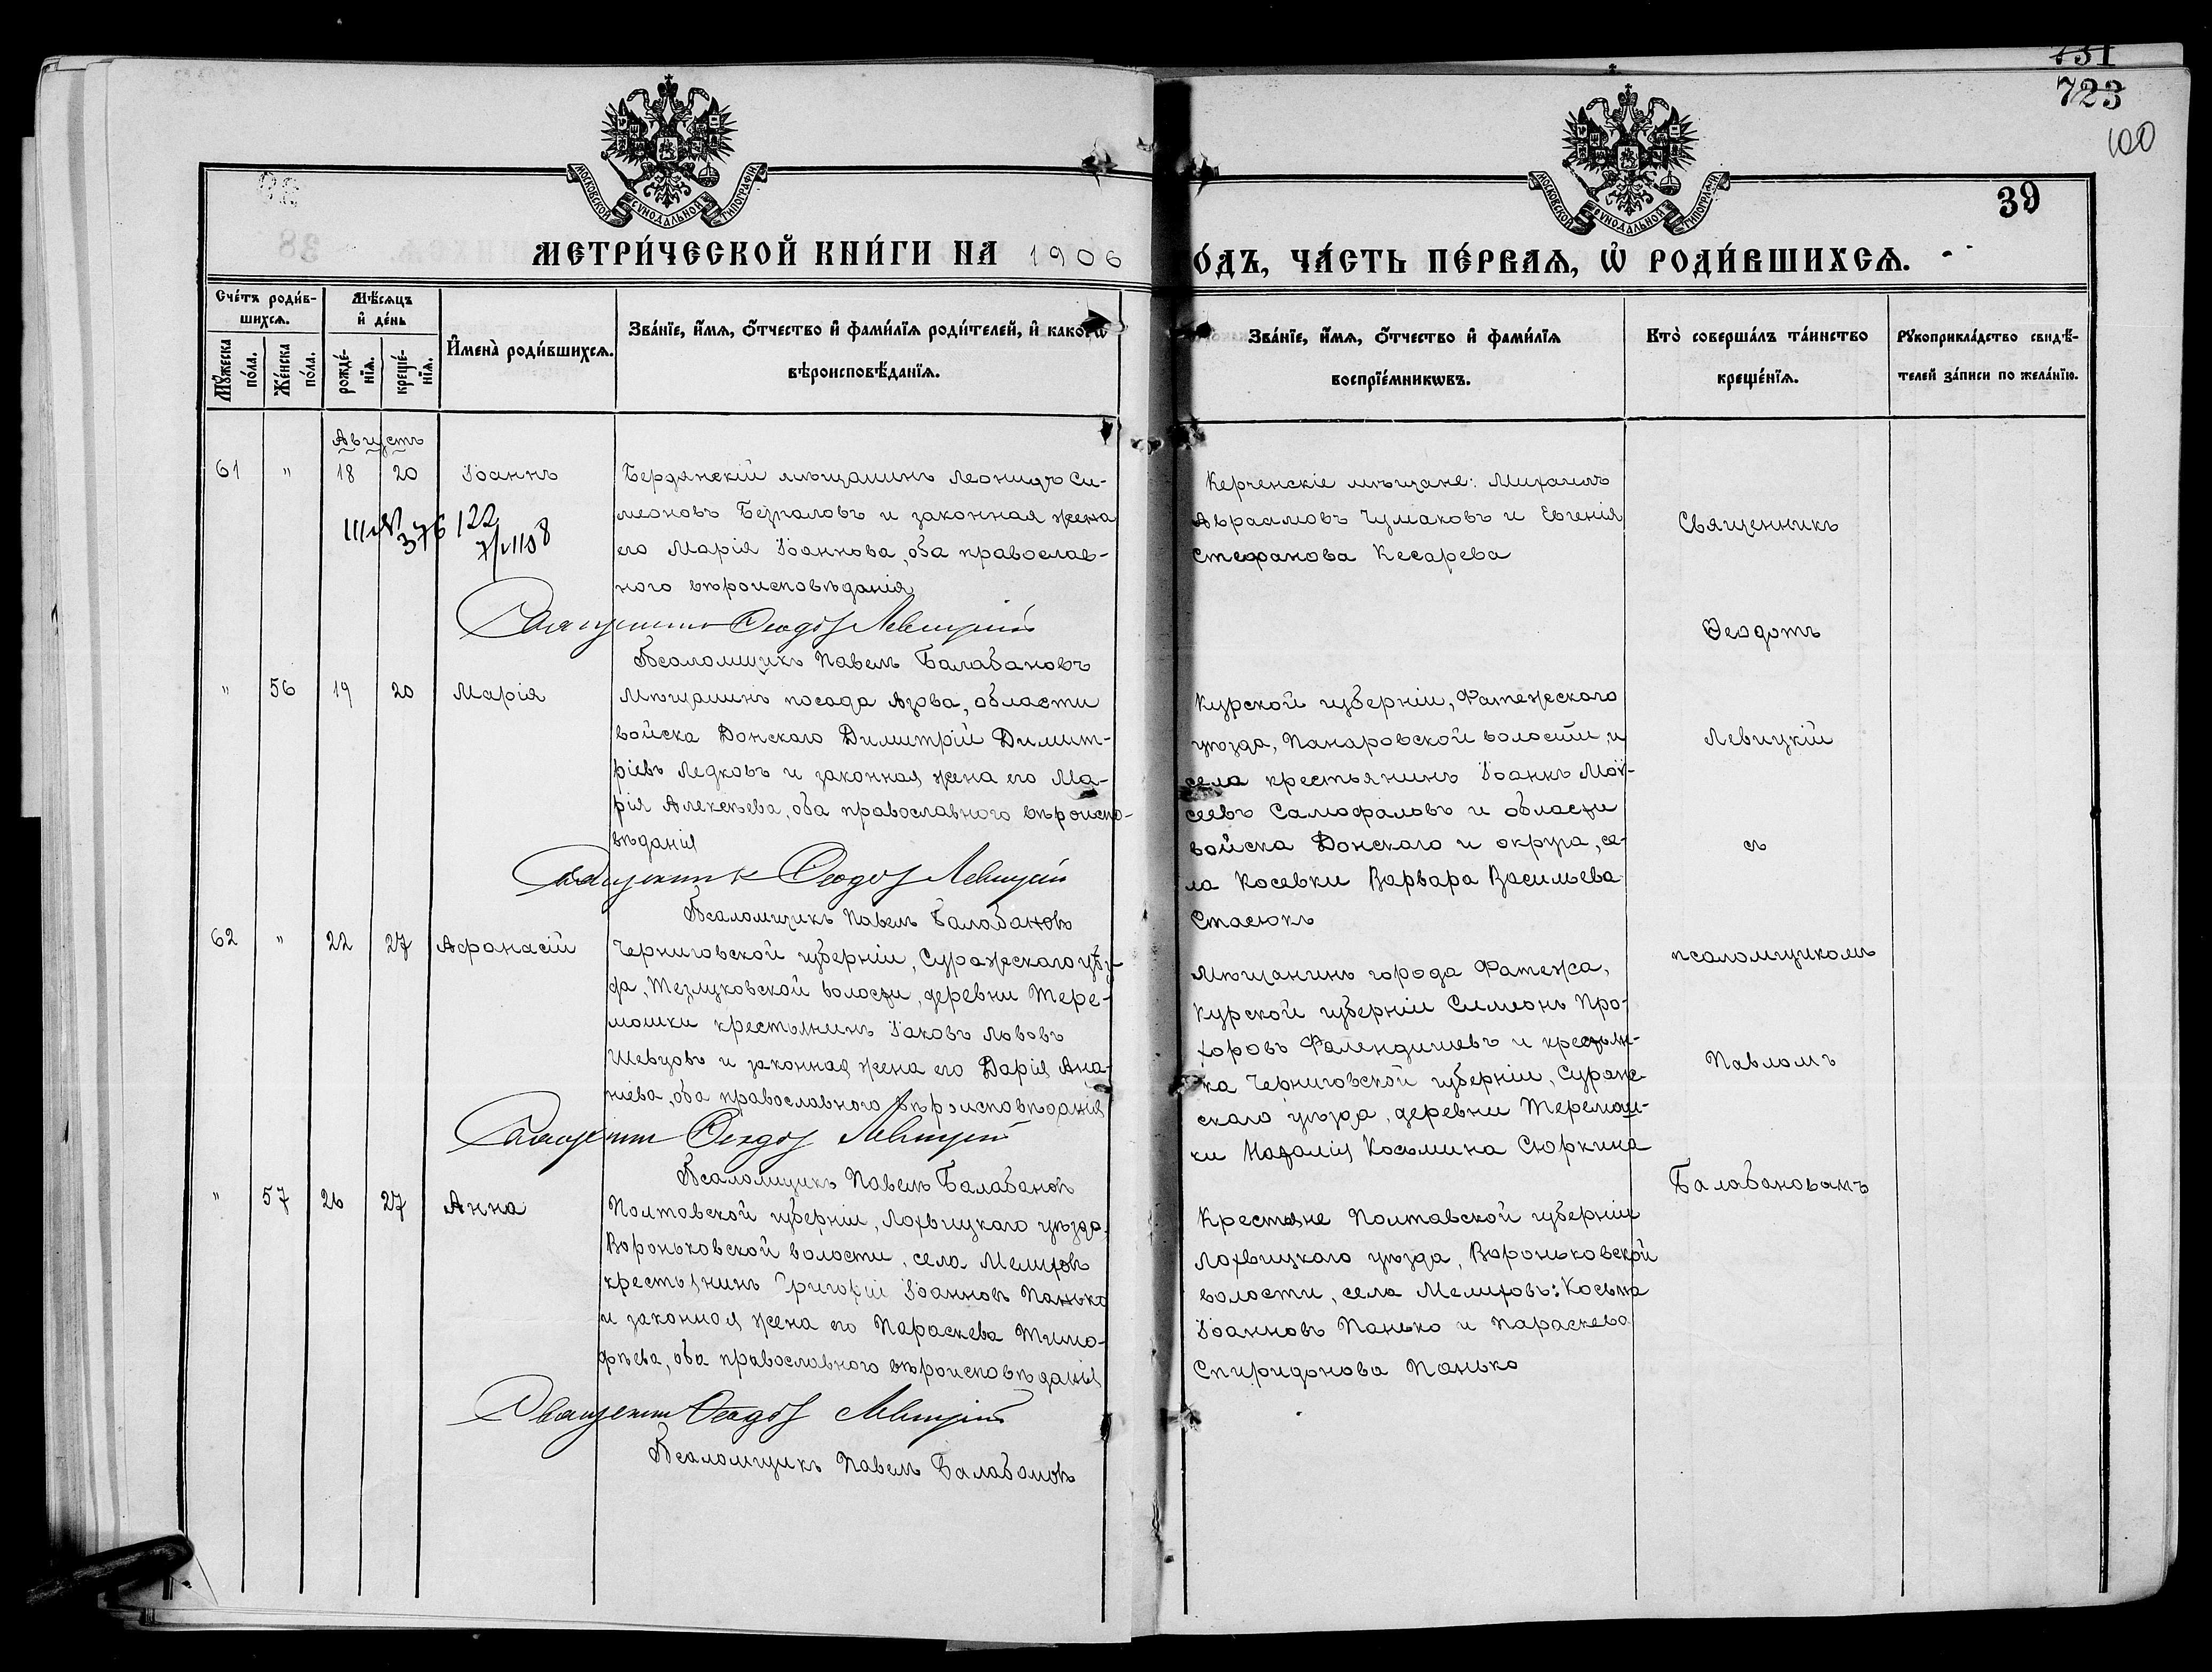 731
723
100
39
МОСКОВСКОЙ СУНОДАЛЬНОЙ ТИПОГРАФІИ
МОСКОВСКОЙ СУНОДАЛЬНОЙ ТИПОГРАФІИ
МЕТРИ́ЧЕСКОЙ КНИ́ГИ НА 1906
О́ДЪ, ЧА́СТЬ ПЕ́РВАЯ, Ѡ҆ РОДИ́ВШИХСЯ.
Сче́тъ роди́в-
шихся.
Мѣ́сяцъ
и҆ де́нь
Мꙋ́жеска
по́ла.
Же́нска
по́ла.
рожде́-
нїя.
креще́-
нїя.
И҆мена̀ роди́вшихся.
Зва́нїе, и҆́мя, о҆́тчество и҆ фами́лїя роди́телей, и҆ како́гѡ
вѣроисповѣ́данїя.
Зва́нїе, и҆́мя, о҆́тчество и҆ фами́лїя
воспрїе́мникѡвъ.
Кто̀ соверша́лъ та́инство
креще́нїя.
Рꙋкоприкла́дство свидѣ́-
телей за́писи по жела́нїю.
Августъ
61 " 18 20 Іоаннъ
Бердянскій мѣщанинъ Леонидъ Си-
меоновъ Безпаловъ и законная жена
его Марія Іоаннова, оба православ-
ного вѣроисповѣданія
Священникъ Ѳеодотъ Левицкій
Псаломщикъ Павелъ Балабановъ
Керченскіе мѣщане: Михаилъ
Авраамовъ Чумаковъ и Евгенія
Стефанова Кесарева
" 56 19 20 Марія
Мѣщанинъ посада Азова, области
войска Донскаго Димитрій Димит-
ріевъ Ледковъ и законная жена его Ма-
рія Алексѣева, оба православного вѣроиспо-
вѣданія
Священникъ Ѳеодотъ Левицкій
Псаломщикъ Павелъ Балабановъ
Курской губерніи, Фатежского
уѣзда, Панаровской волости, и
села крестьянинъ Іоаннъ Мой-
сеевъ Самофаловъ и области
войска Донскаго и округа, се-
ла Косевки Варвара Васильева
Стасюкъ
62 " 22 27 Афанасій
Черниговской губерніи, Суражскаго уѣз-
да, волости, деревни Тере-
мошки крестьянинъ Іаковъ Лвовъ
Шевцовъ и законная жена его Дарія Ана-
ніева, оба православного вѣроисповѣданія
Священникъ Ѳеодотъ Левицкій
Псаломщикъ Павелъ Балабановъ
Мѣщанинъ города Фатежа,
Курской губерніи Симеонъ Про-
хоровъ и крестьян-
ка Черниговской губерніи, Сураж-
скаго уѣзда, деревни Теремош-
ки Наталія Косьмина Сюркина
" 57 26 27 Анна
Полтавской губерніи, Лохвицкаго уѣзда,
Вороньковской волости, села Мелиховъ
крестьянинъ Григорій Іоанновъ Панько
и законная жена его Параскева Тимо-
фѣева, оба православного вѣроисповѣданія
Священникъ Ѳеодотъ Левицкій
Псаломщикъ Павелъ Балабановъ
Крестьяне Полтавской губерніи
Лохвицкаго уѣзда, Вороньковской
волости, села Мелиховъ: Косьма
Іоанновъ Панько и Параскева
Спиридонова Панько
Священникъ
Ѳеодотъ
Левицкій
съ
псаломщикомъ
Павломъ
Балабановымъ